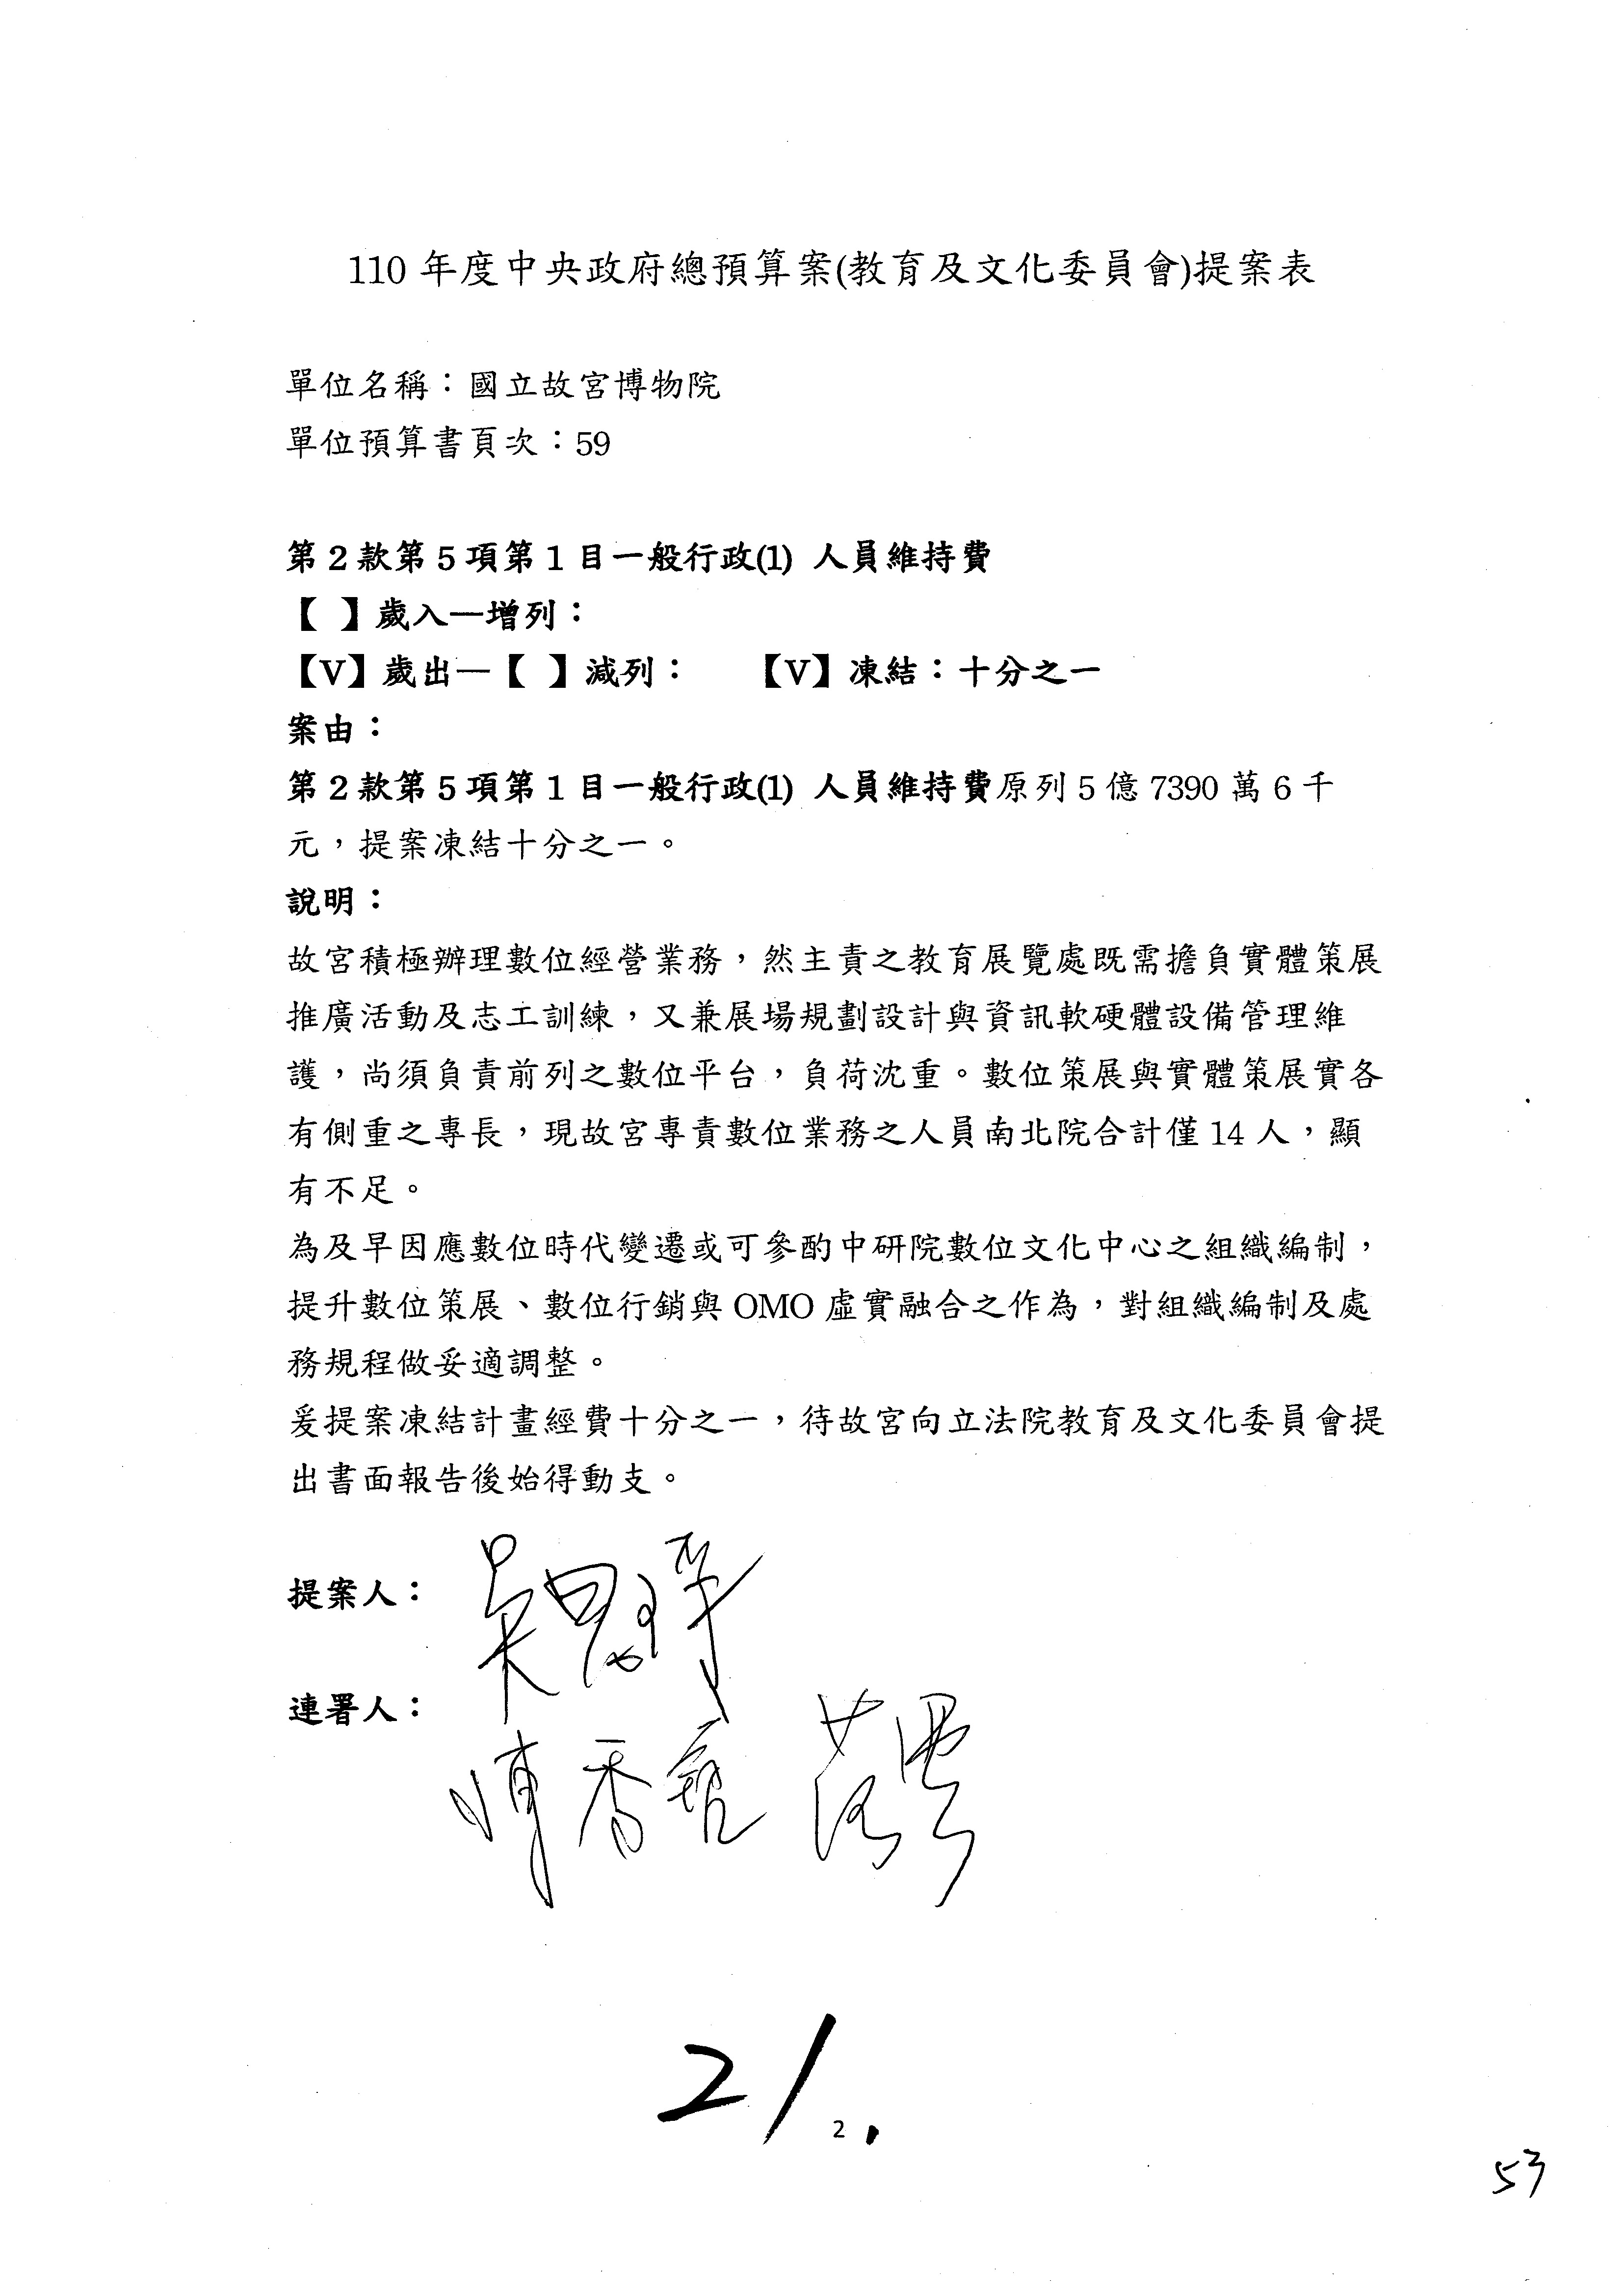 110 年度中央政府總預算案(教育及文化委員會)提案表
單位名稱：國立故宮博物院
單位預算書頁次：59
第 2 款第 5 項第 1 目一般行政(1) 人員維持費
【 】歲入—增列：
【V】歲出—【 】減列： 【V】凍結：十分之一
案由：
第 2 款第 5 項第 1 目一般行政(1) 人員維持費原列 5 億 7390 萬 6 千
元，提案凍結十分之一。
說明：
故宮積極辦理數位經營業務，然主責之教育展覽處既需擔負實體策展
推廣活動及志工訓練，又兼展場規劃設計與資訊軟硬體設備管理維
護，尚須負責前列之數位平台，負荷沈重。數位策展與實體策展實各
有側重之專長，現故宮專責數位業務之人員南北院合計僅 14 人，顯
有不足。
為及早因應數位時代變遷或可參酌中研院數位文化中心之組織編制，
提升數位策展、數位行銷與 OMO 虛實融合之作為，對組織編制及處
務規程做妥適調整。
爰提案凍結計畫經費十分之一，待故宮向立法院教育及文化委員會提
出書面報告後始得動支。
提案人：
吳思瑤
連署人：
陳秀寳 范雲
21.
2
53